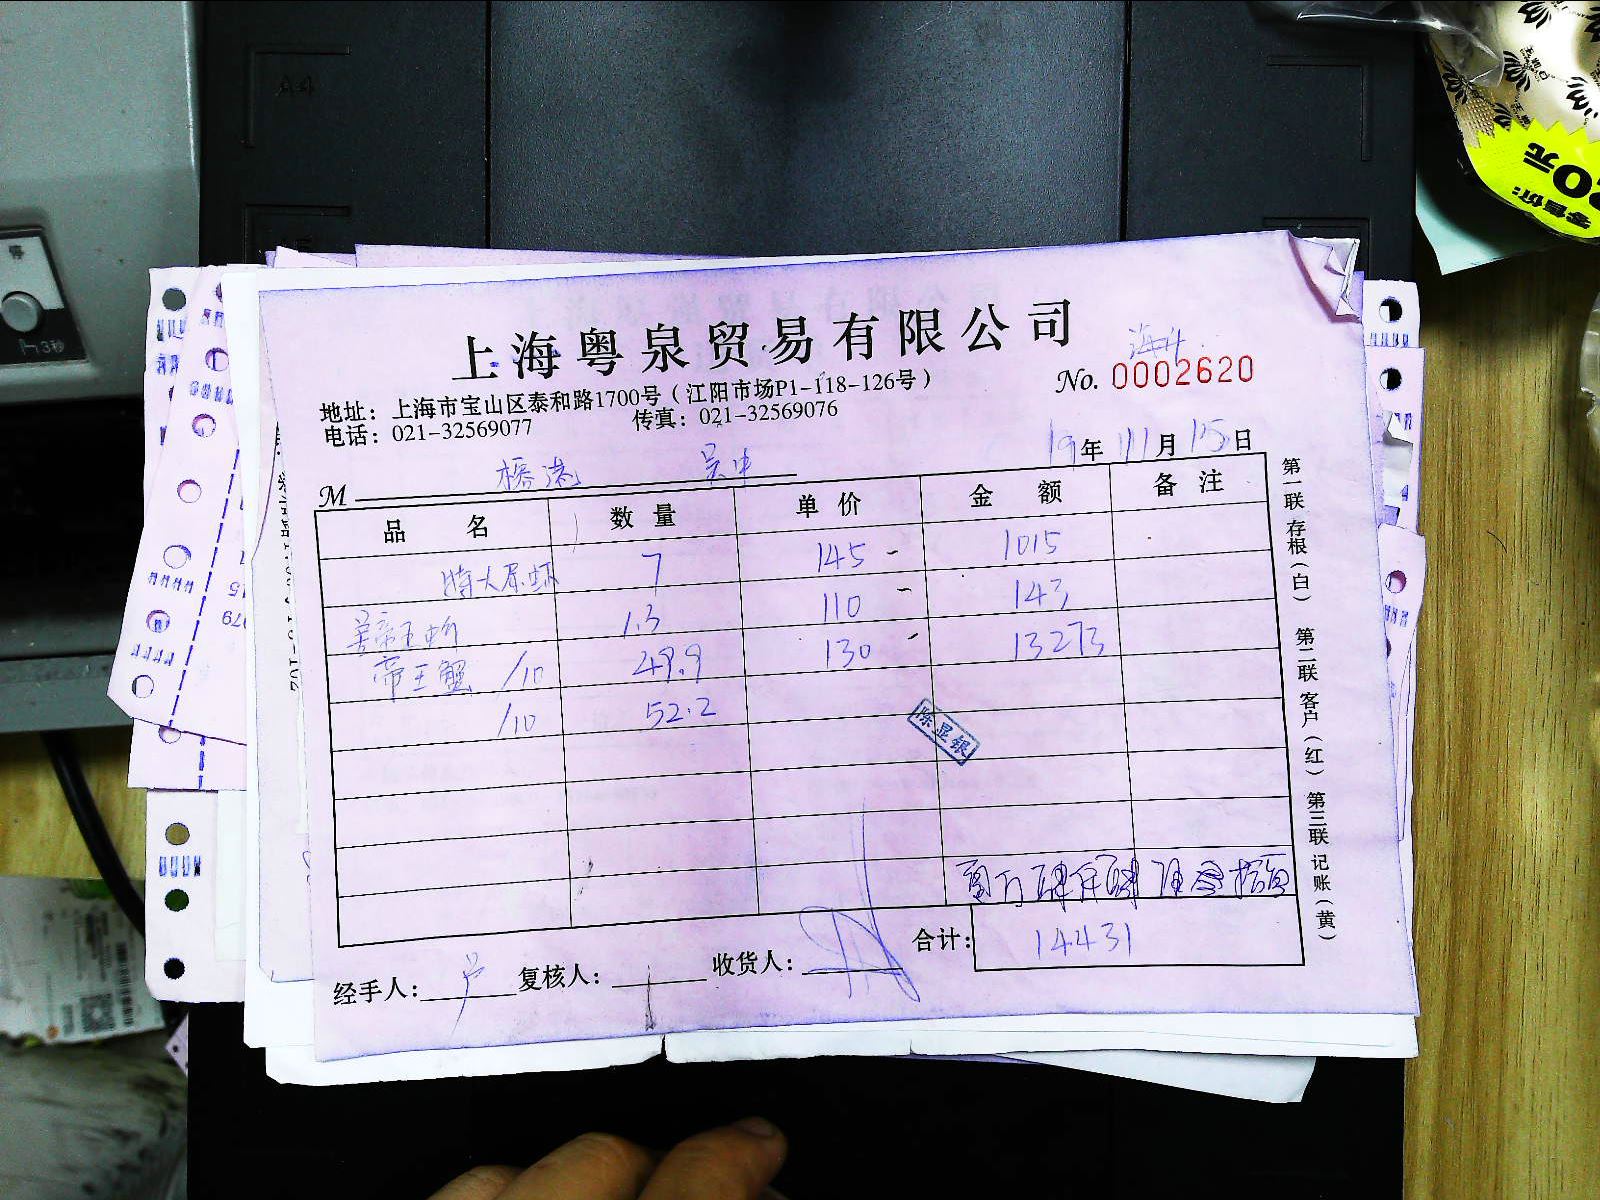 上海粤泉贸易有限公司
地址：上海市宝山区泰和路1700号（江阳市场P1-118-126号）
No. 0002620
电话：021-32569077 传真：021-32569076
19年 11月 15日
M 榕港 吴中
品名 数量 单价 金额 备注
特大尿虾 7 145 - 1015
1.3 110 - 143
帝王蟹 /10 49.9 130 - 13273
/10 52.2
陈显银
合计： 14431
经手人： 复核人： 收货人：
第一联 存根（白） 第二联 客户（红） 第三联 记账（黄）
零售价:
元
A4
3秒